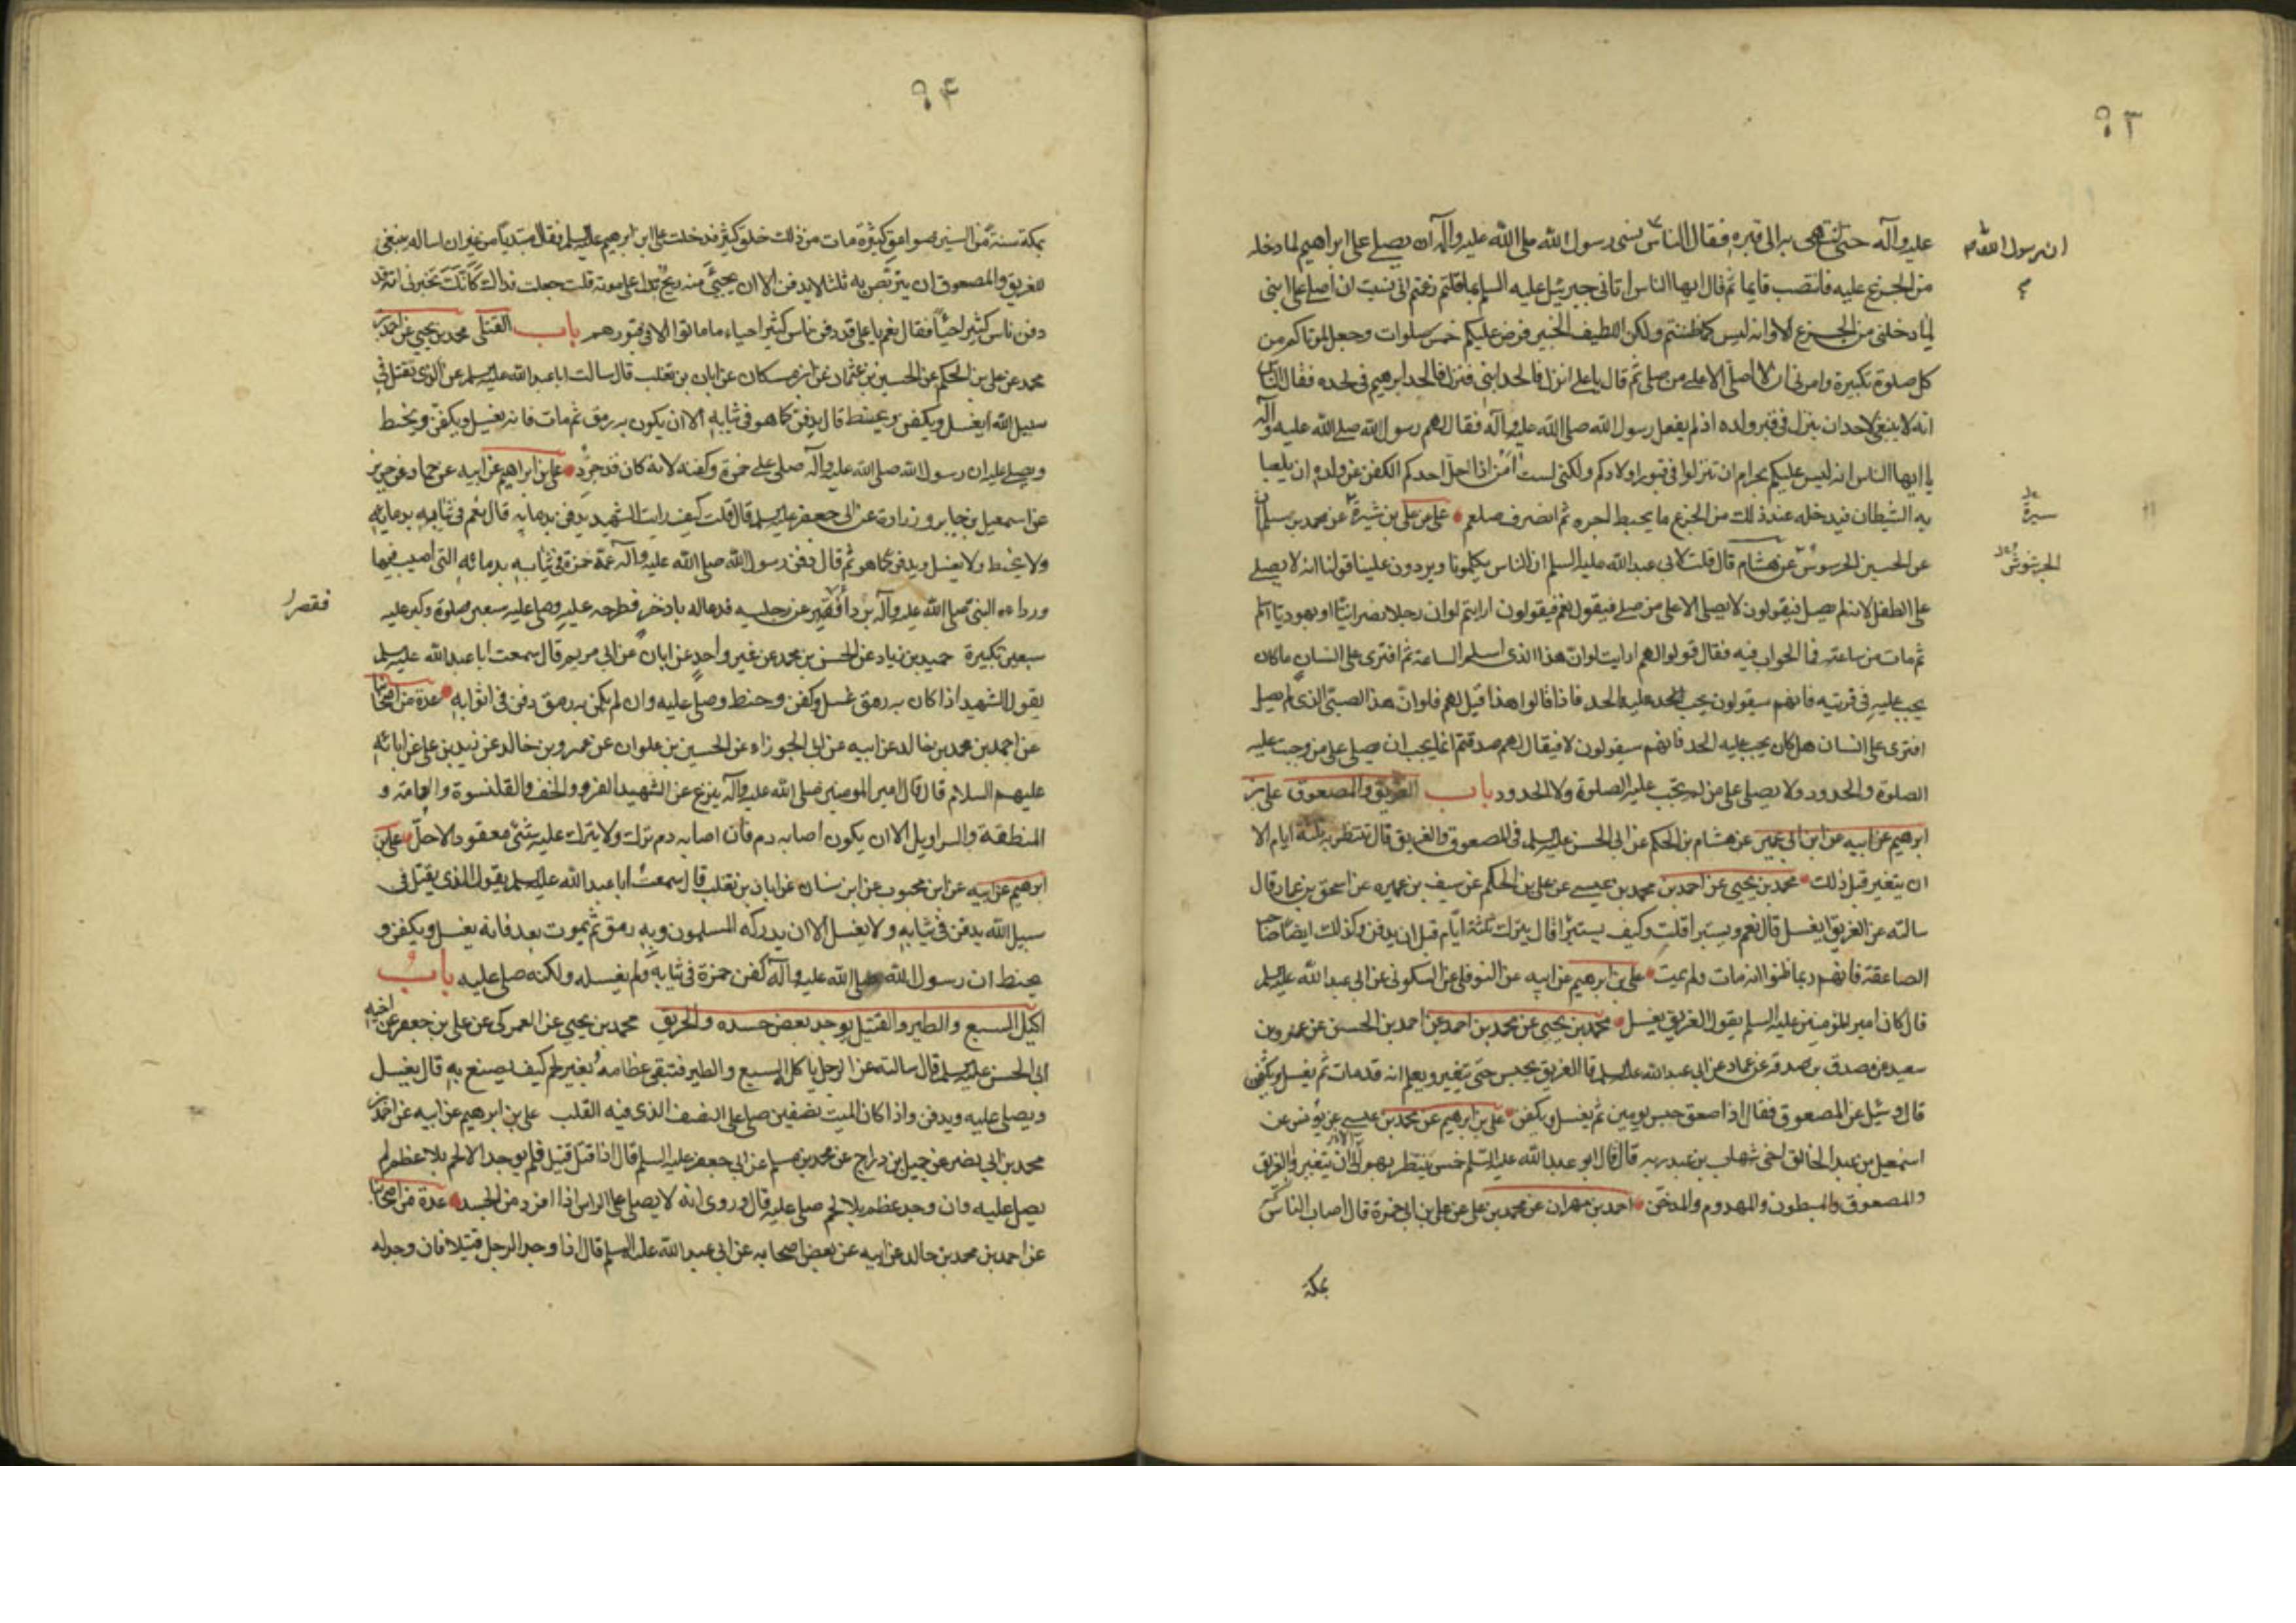 ۹۳
عليه وآله حتى انتهى به الى قبره فقال الناس نسى رسول الله صلى الله عليه وآله ان يصلى على ابراهيم لما دخله
ان رسول الله ص
من الجزع عليه فانتصب قايما ثم قال ايها الناس اتانى جبرئيل عليه السلم بما قلتم زعمتم انى نسيت ان اصلى على ابنى
لما دخلنى من الجزع الا وانه ليس كما ظننتم ولكن اللطيف الخبير فرض عليكم خمس صلوات وجعل لموتاكم من
كل صلوة تكبيرة وامرنى ان لا اصلى الا على من صلى ثم قال يا على انزل فالحد ابنى فنزل فالحد ابرهيم فى لحده فقال الناس
انه لا ينبغى لاحد ان ينزل فى قبر ولده اذ لم يفعل رسول الله صلى الله عليه وآله فقال لهم رسول الله صلى الله عليه وآله
يا ايها الناس انه ليس عليكم بحرام ان تنزلوا فى قبور اولادكم ولكنى لست آمن اذا حل احدكم الكفن عن ولده ان يلعبا
به الشيطان فيدخله عند ذلك من الجزع ما يحبط اجره ثم انصرف صلعم على بن على بن شيرة عن محمد بن سليمان
سيرة
عن الحسين الحرسوس عن هشام قال قلت لابى عبد الله عليه السلم ان الناس يكلمونا ويردون علينا قولنا انه لا يصلى
الجرشوش
على الطفل لانه لم يصل فيقولون لا يصلى الا على من صلى فيقول نعم فيقولون ارايتم لو ان رجلا نصرانيا او يهوديا اسلم
ثم مات من ساعته فما الجواب فيه فقال قولوا لهم ارايت لو ان هذا الذى اسلم الساعة ثم افترى على انسان ما كان
يجب عليه فى فريته فانهم سيقولون يجب الحد عليه الحد فاذا قالوا هذا قيل لهم فلو ان هذا الصبى الذى لم يصل
افترى على انسان هل كان يجب عليه الحد فانهم سيقولون لا فيقال لهم صدقتم انما يجب ان يصلى على من وجبت عليه
الصلوة والحدود ولا يصلى على من لم تجب عليه الصلوة ولا الحدود باب الغريق والمصعوق على بن
ابرهيم عن ابيه عن ابن ابى عمير عن هشام بن الحكم عن ابى الحسن عليه السلم فى المصعوق والغريق قال تنتظر به ثلثة ايام الا
ان يتغير قبل ذلك محمد بن يحيى عن احمد بن محمد بن عيسى عن على بن الحكم عن سيف بن عميرة عن اسحق بن عمار قال
سالته عن الغريق ايغسل قال نعم ويستبرا قلت وكيف يستبرا قال يترك ثلثة ايام قبل ان يدفن وكذلك ايضا صاحب
الصاعقة فانهم ربما ظنوا انه مات ولم يمت على بن ابرهيم عن ابيه عن النوفلى عن السكونى عن ابى عبد الله عليه السلم
قال كان امير المؤمنين عليه السلم يقول الغريق يغسل محمد بن يحيى عن محمد بن احمد عن احمد بن الحسن عن عمرو بن
سعيد عن مصدق بن صدقة عن عمار عن ابى عبد الله عليه السلم قال الغريق يحبس حتى يتغير ويعلم انه قد مات ثم يغسل ويكفن
قال وسئل عن المصعوق فقال اذا صعق حبس يومين ثم يغسل ويكفن على بن ابرهيم عن محمد بن عيسى عن يونس عن
اسمعيل بن عبد الخالق اخى شهاب بن عبد ربه قال قال ابو عبد الله عليه السلم خمس ينتظر بهم الا ان يتغير والغريق
والمصعوق والمبطون والمهدوم والمدخن احمد بن مهران عن محمد بن على عن على بن ابى حمزة قال اصاب الناس
بمكة
۹۴
بمكة سنة من السنين صواعق كثيرة مات من ذلك خلق كثير فدخلت على ابى ابرهيم عليه السلم فقال مبتديا من غير ان اساله ينبغى
للغريق والمصعوق ان يتربص به ثلثا لا يدفن الا ان يجيئ منه ريح تدل على موته قلت جعلت فداك كانك تخبرنى انه قد
دفن ناس كثير احياء فقال نعم يا على قد دفن ناس كثير احياء ما ماتوا الا فى قبورهم باب القتلى محمد بن يحيى عن احمد بن
محمد عن على بن الحكم عن الحسين بن عثمان عن ابن مسكان عن ابان بن تغلب قال سالت ابا عبد الله عليه السلم عن الذى يقتل فى
سبيل الله ايغسل ويكفن ويحنط قال يدفن كما هو فى ثيابه الا ان يكون به رمق ثم مات فانه يغسل ويكفن ويحنط
ويصلى عليه ان رسول الله صلى الله عليه وآله صلى على حمزة وكفنه لانه كان قد جرد على بن ابراهيم عن ابيه عن حماد عن حريز
عن اسمعيل بن جابر وزرارة عن ابى جعفر عليه السلم قال قلت كيف رايت الشهيد يدفن بدمائه قال نعم فى ثيابه بدمايه
ولا يحنط ولا يغسل ويدفن كما هو ثم قال دفن رسول الله صلى الله عليه وآله عمه حمزة فى ثيابه بدمائه التى اصيب فيها
ورداءه النبى صلى الله عليه وآله بردا فقصر عن رجليه فدعا له باذخر فطرحه عليه وصلى عليه سبعين صلوة وكبر عليه
فقصر
سبعين تكبيرة حميد بن زياد عن الحسن بن محمد عن غير واحد عن ابان عن ابى مريم قال سمعت ابا عبد الله عليه السلم
يقول الشهيد اذا كان به رمق غسل وكفن وحنط وصلى عليه وان لم يكن به رمق دفن فى اثوابه عدة من اصحابنا
عن احمد بن محمد بن خالد عن ابيه عن ابى الجوزاء عن الحسين بن علوان عن عمرو بن خالد عن زيد بن على عن ابائه
عليهم السلام قال قال امير المومنين صلى الله عليه وآله ينزع عن الشهيد الفرو والخف والقلنسوة والعمامة و
المنطقة والسراويل الا ان يكون اصابه دم فان اصابه دم ترك ولا يترك عليه شئ معقود الا حل على بن
ابرهيم عن ابيه عن ابن محبوب عن ابن سنان عن ابان بن تغلب قال سمعت ابا عبد الله عليه السلم يقول الذى يقتل فى
سبيل الله يدفن فى ثيابه ولا يغسل الا ان يدركه المسلمون وبه رمق ثم يموت بعد فانه يغسل ويكفن و
يحنط ان رسول الله صلى الله عليه وآله كفن حمزة فى ثيابه ولم يغسله ولكنه صلى عليه باب
اكيل السبع والطير والقتيل يوجد بعض جسده والحريق محمد بن يحيى عن العمركى عن على بن جعفر عن اخيه
ابى الحسن عليه السلم قال سالته عن الرجل ياكل السبع والطير فتبقى عظامه بغير لحم كيف يصنع به قال يغسل
ويصلى عليه ويدفن واذا كان الميت نصفين صلى على النصف الذى فيه القلب على بن ابرهيم عن ابيه عن احمد بن
محمد بن ابى نصر عن جميل بن دراج عن محمد بن مسلم عن ابى جعفر عليه السلم قال اذا قتل قتيل فلم يوجد الا لحم بلا عظم لم
يصل عليه وان وجد عظم بلا لحم صلى عليه قال وروى انه لا يصلى على الراس اذا افرد من الجسد عدة من اصحابنا
عن احمد بن محمد بن خالد عن ابيه عن بعض اصحابه عن ابى عبد الله عليه السلم قال اذا وجد الرجل قتيلا فان وجد له